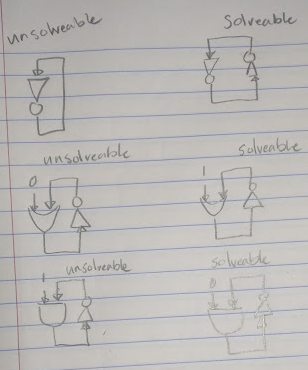 unsolveable
solveable
unsolveable
0
solveable
1
unsolveable
1
solveable
0